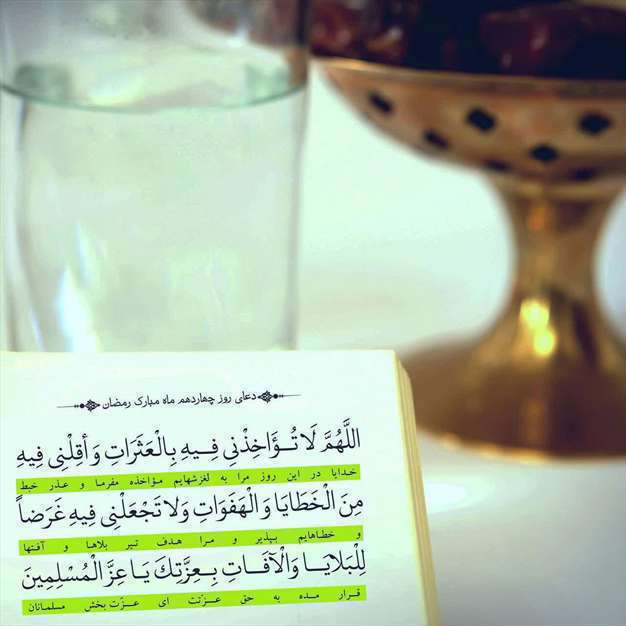 دعای روز چهاردهم ماه مبارک رمضان
اللَّهُمَّ لَا تُؤَاخِذْنِی فِیهِ بِالْعَثَرَاتِ وَ أَقِلْنِی فِیهِ
خدایا در این روز مرا به لغزشهایم مؤاخذه مفرما و عذر خبط
مِنَ الْخَطَایَا وَ الْهَفَوَاتِ وَلا تَجْعَلْنِی فِیهِ غَرَضاً
و خطاهایم بپذیر و مرا هدف تیر بلاها و آفتها
لِلْبَلایَا وَالْآفَاتِ بِعِزَّتِكَ یَا عِزَّ الْمُسْلِمِینَ
قرار مده به حق عزّتت ای عزّت بخش مسلمانان